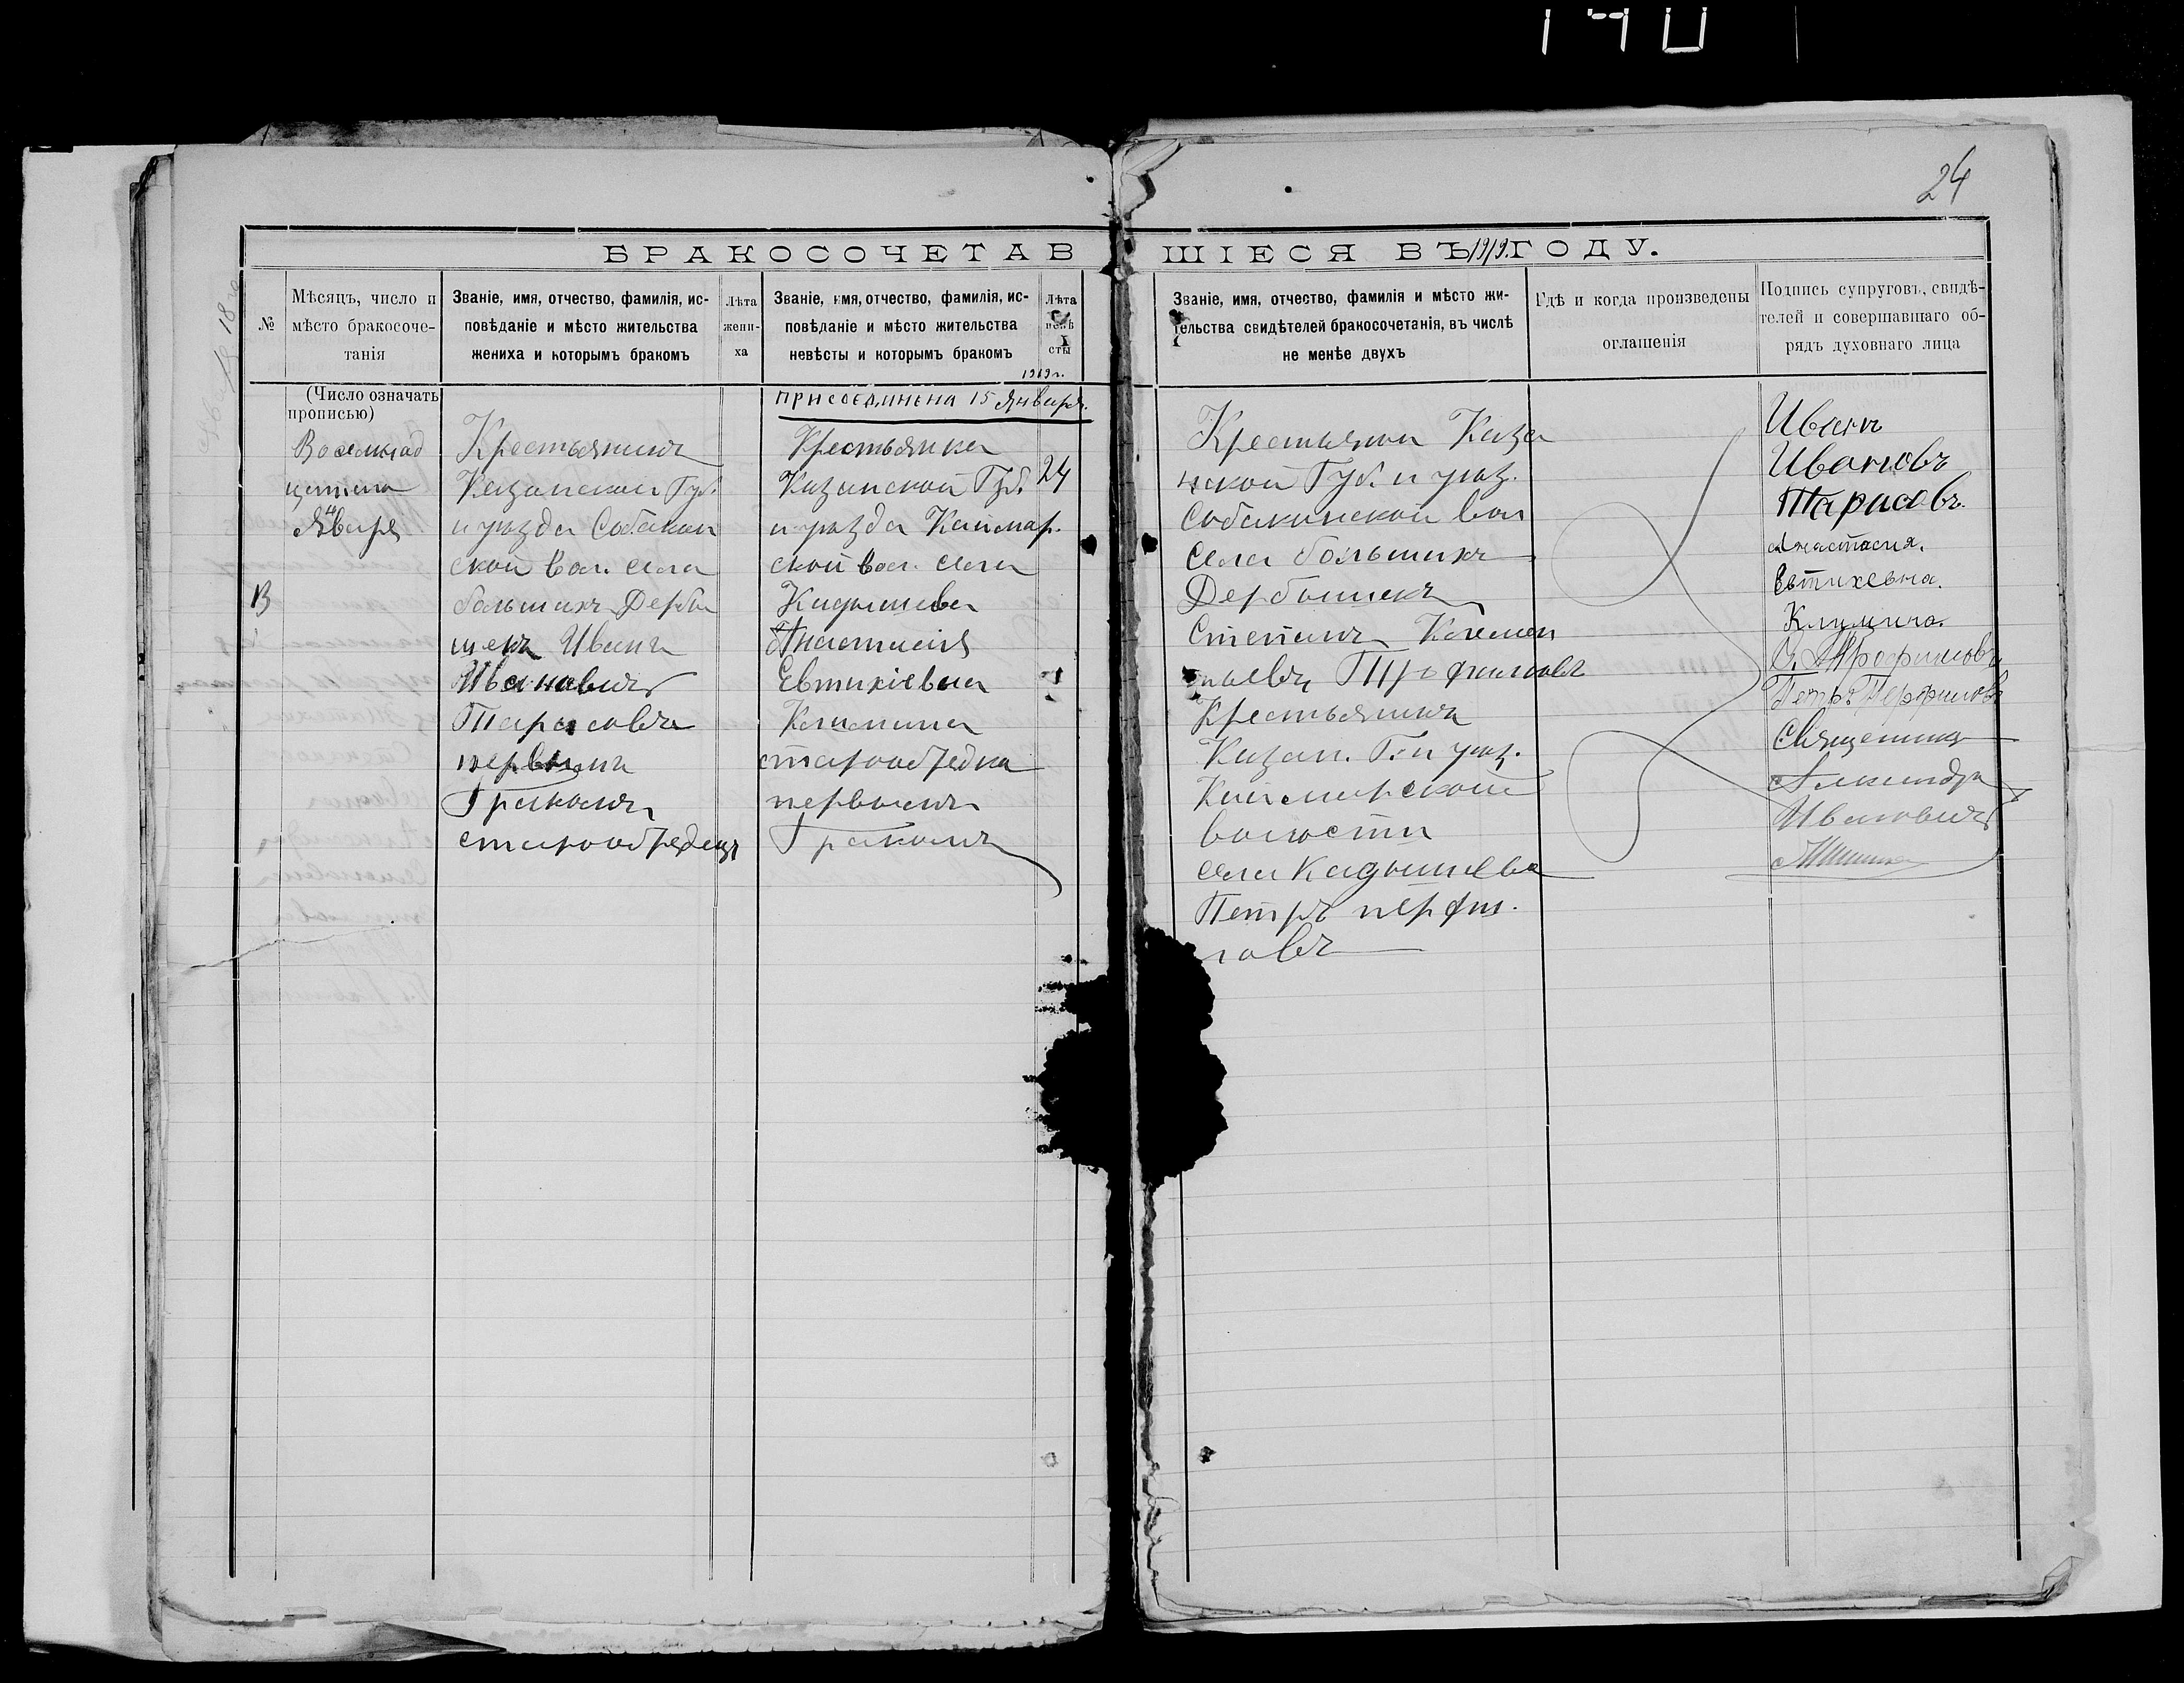 24
БРАКОСОЧЕТАВ ШІЕСЯ ВЪ 1919. ГОДУ.
№
Мѣсяцъ, число и
мѣсто бракосоче-
танія
Званіе, имя, отчество, фамилія, ис-
повѣданіе и мѣсто жительства
жениха и которымъ бракомъ
Лѣта
жени-
ха
Званіе, имя, отчество, фамилія, ис-
повѣданіе и мѣсто жительства
невѣсты и которымъ бракомъ
Лѣта
невѣ
сты
Званіе, имя, отчество, фамилія и мѣсто жи-
тельства свидѣтелей бракосочетанія, въ числѣ
не менѣе двухъ
Гдѣ и когда произведены
оглашенія
Подпись супруговъ, свидѣ-
телей и совершавшаго об-
рядъ духовнаго лица
(Число означать
прописью)
Восемнад
цатаго
Января
В
Крестьянинъ
Казанской Губ.
и уѣзда Собакин
ской вол. села
большихъ Дербы
шекъ Иванъ
Ивановичъ
Тарасовъ
первымъ
Бракомъ
старообрядецъ
1919 г.
присоединена 15 Января.
Крестьянка
Казанской Губ.
и уѣзда Каймар.
ской вол. села
Кадышева
Анастасія
Евтихіевна
Климина
старообрядка
первымъ
Бракомъ
24
Крестьянин Каза
нской Губ. и уѣз.
Собакинской вол
села большихъ
Дербышекъ
Степанъ
Трофимовъ
Крестьянинъ
Казан. Г. и уѣз.
Каймарской
волости
села Кадышева
Петръ перфи.
ловъ
Иванъ
Ивановъ
Тарисовъ.
Анастасия.
Евтихевна.
С. Трофимовъ
Петръ Перфиловъ
Священникъ
Александръ
Ивановичъ